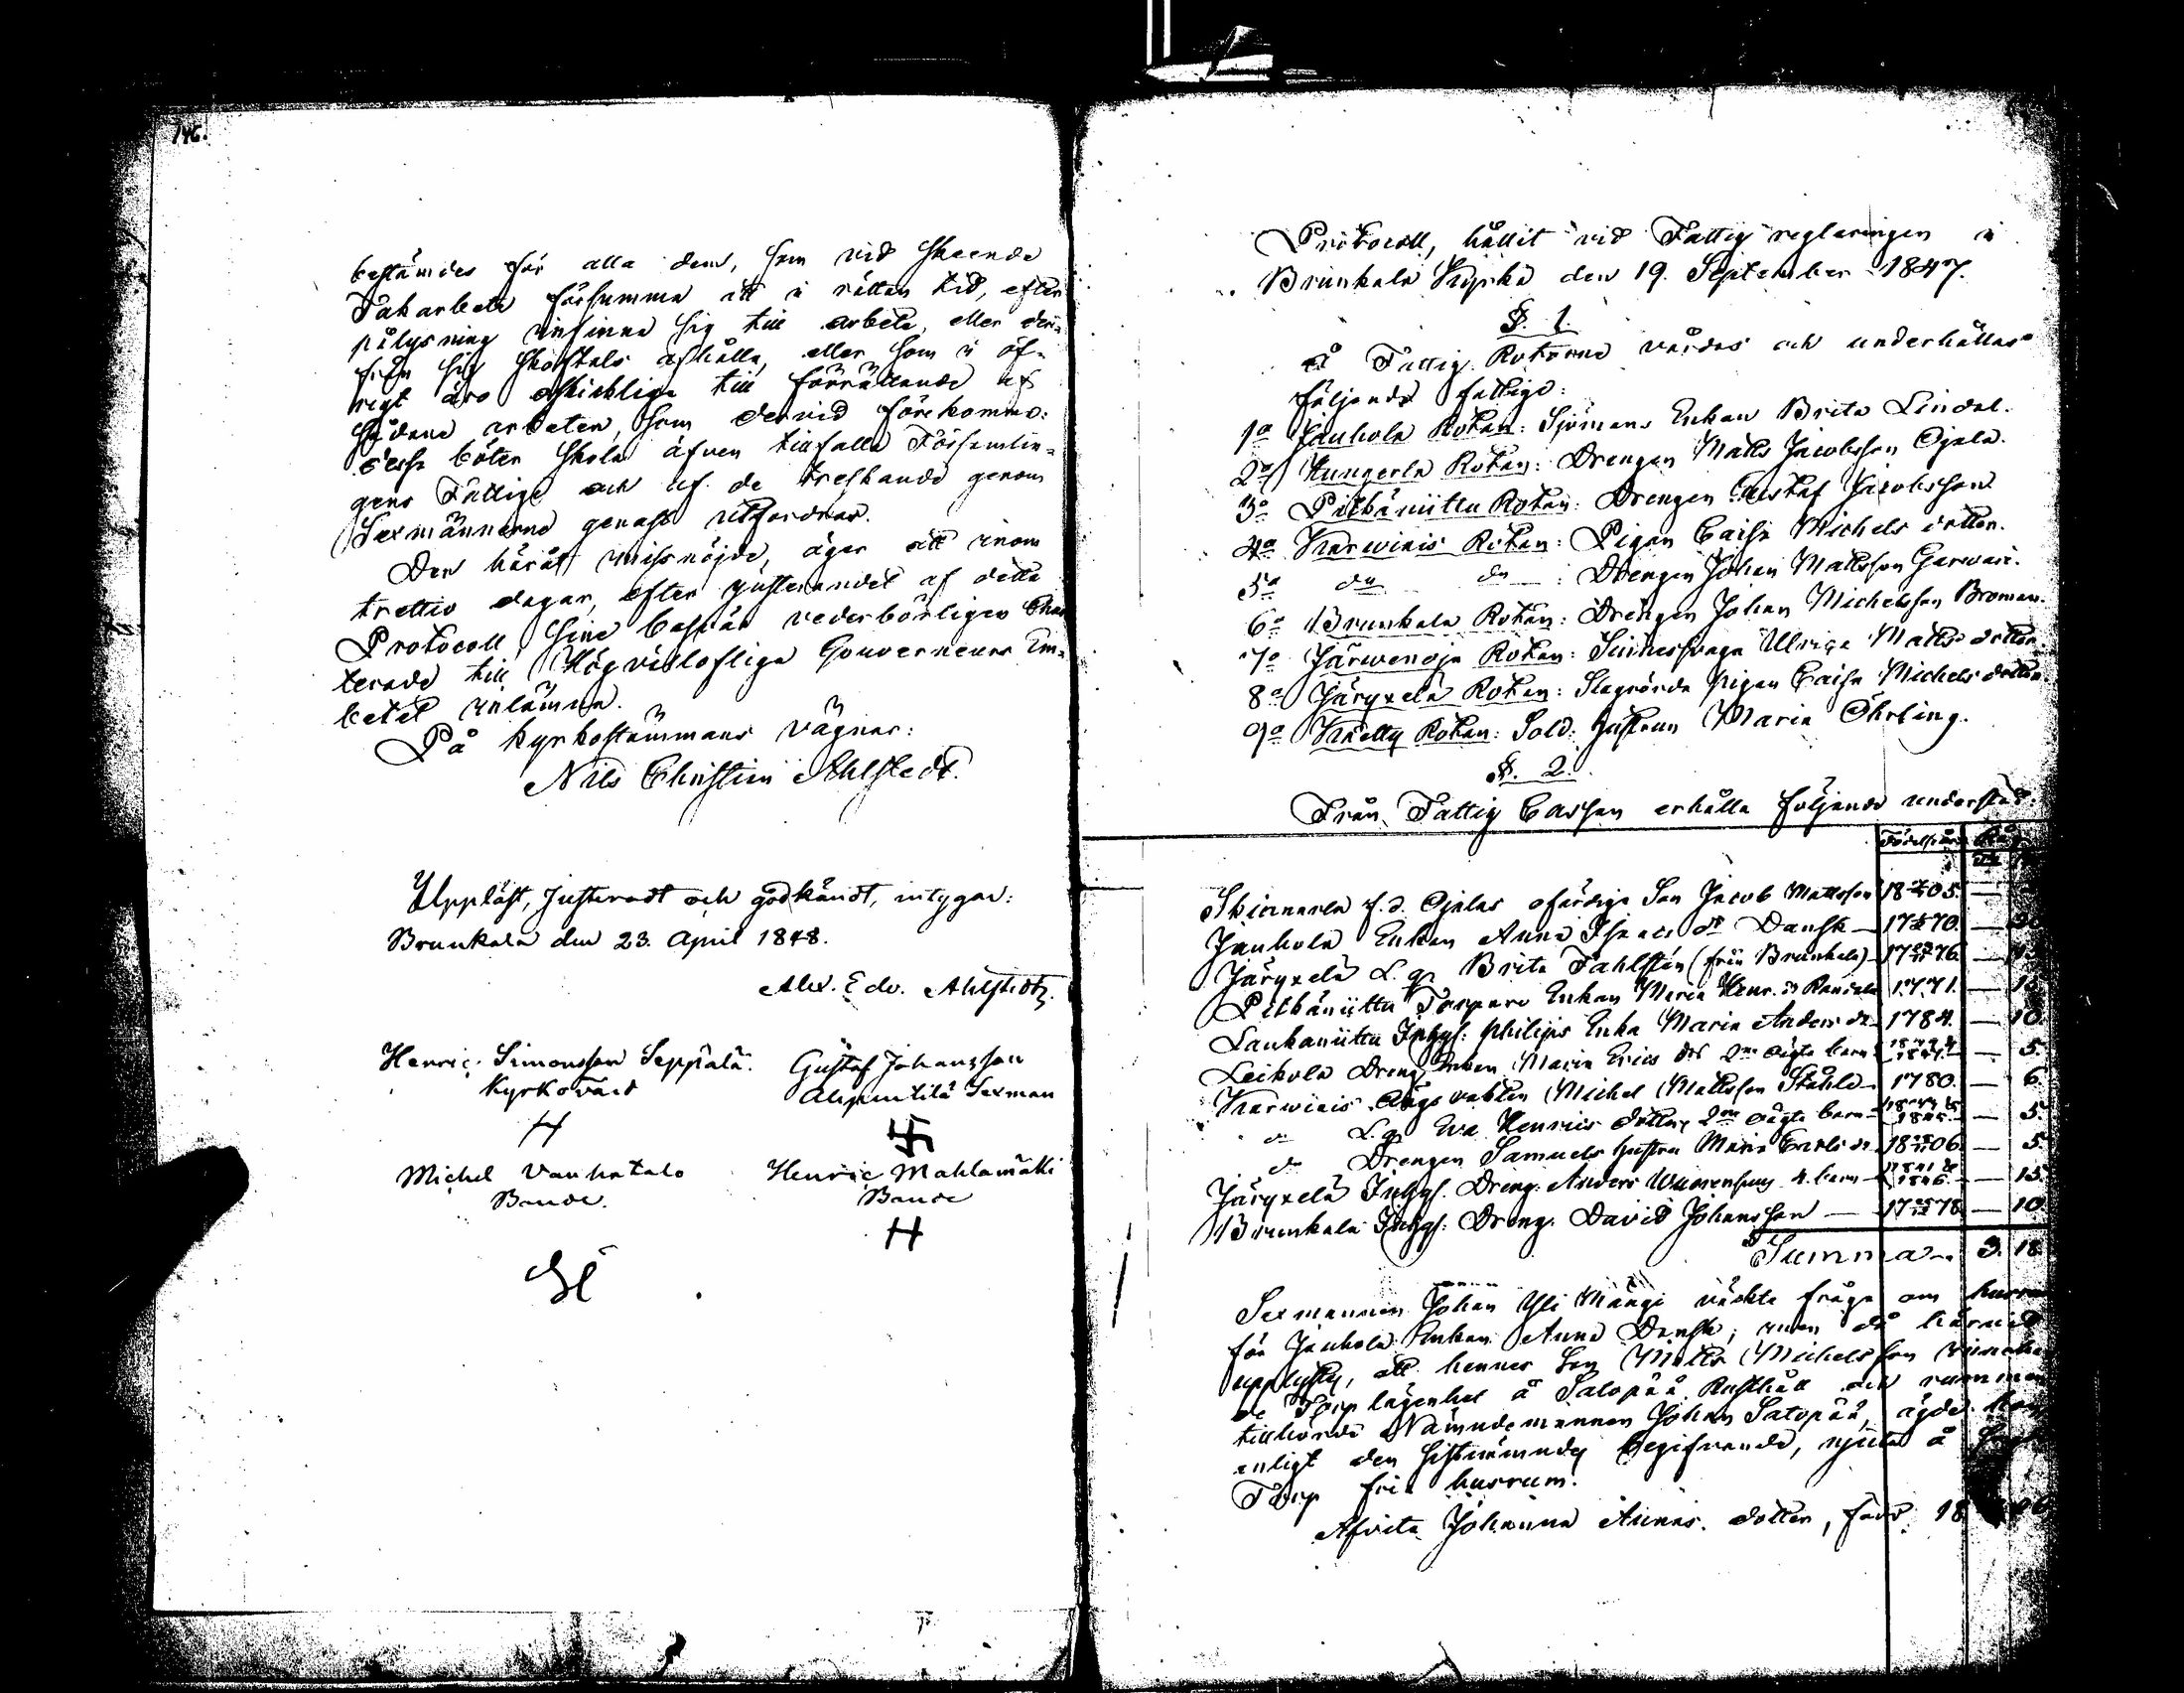 146.
bestämdes för alla dem, som vid skeende
Takarbete försumma att i rättan tid, efter
pålysning infinna sig till arbete, eller der-
ifrån sig skoftals afhålla, eller som i öf-
rigt äro oskicklige till förrättande af
sådane arbeten, som dervid förekomma:
desse böter skola äfven tillfalla Församlin-
gens Fattige och af de treskande genom
Sexmännerne genast utfordras.
Den häråt missnöjde, äger att inom
trettio dagar, efter justerandet af detta
Protocoll, sine besvär vederbörligen Char-
terade till Högvällofliga Gouverneurs Em-
betet inlämna.
På Kyrkostämmans vägnar:
Nils Christian Ahlstedt.
Uppläst, Justeradt och godkändt, intygar:
Brunkala den 23. April 1848.
Alex. Edv. Ahlstedt.
Henric Simonsson Seppälä. Gustaf Johansson
Kyrkovärd Sexman
Michel Vanhatalo Henric Mahlamäki
Bonde. Bonde
Protocoll, hållit vid Fattig regleringen i
Brunkala Kyrka den 19. September 1847.
§. 1.
Å Fattig Rotarne vårdas och underhållas
följande fattige:
1o Jauhola Rotan: Sjömans Enkan Brita Lindal.
2o Kungerla Rotan: Drengen Matts Jacobsson Ojala.
3o Pitkäniittu Rotan: Drengen Gustaf Jacobsson
4o Karwiais Rotan: Pigan Caisa Michels dotter.
5o do do : Drengen Johan Mattsson Garwari.
6o Brunkala Rotan: Drengen Johan Michelsson Broman.
7o Järwenoja Rotan: Sinnessvaga Ulrica Matts dotter.
8o Järyxelä Rotan: Slagrörda pigan Caisa Michels dotter.
9o Krelly Rotan: Sold: hustrun Maria Öhrling.
§. 2.
Från Fattig Cassan erhålla följande understöd:
Födelseår
Skinnarla f.d. Ojalas ofärdige Son Jacob Mattsson 1805. —
Jauhola Enkan Anna Isaacs dr Dansk — 1770. — 20.
Järyxelä L. q. Brita Fahlstén (från Brunkala) — 1776. — 15.
Pitkäniittu Torpare Enkan Maria Henr. dr Randala 1771. —
Laukaniitu Inhys: Philips Enka Maria Anders dr 1784. — 10.
Leikola Dreng Enkan Maria Erics dr 2ne oägta barn — 5.
Karwiais Ringvakten Michel Mattsson Ståhle — 1780. — 6.
do L. q. Eva Henrics dotter, 2ne oägta barn — 5.
do Drengen Samuels hustru Maria Carls dr 1806. — 5.
Järyxelä Inhys. Dreng. Anders 4. barn — 15.
Brunkala Inhys: Dreng. David Johansson — 1778. — 10.
Summa — 3. 18.
Sexmannen Johan Yli Mängi väckte fråga om husrum
för Jauhola Enkan Anna Dansk; men då härvid
upplystes, att hennes Son Matts Michelsson innehade
de Torplägenhet å Salopää Rusthåll och rummen
tillhörde Nämndemannen Johan Salopää, ägde hon,
enligt den sistnämndes begifvande, njuta å
Torp fria husrum.
Afvita Johanna Annas. dotter, född. 18